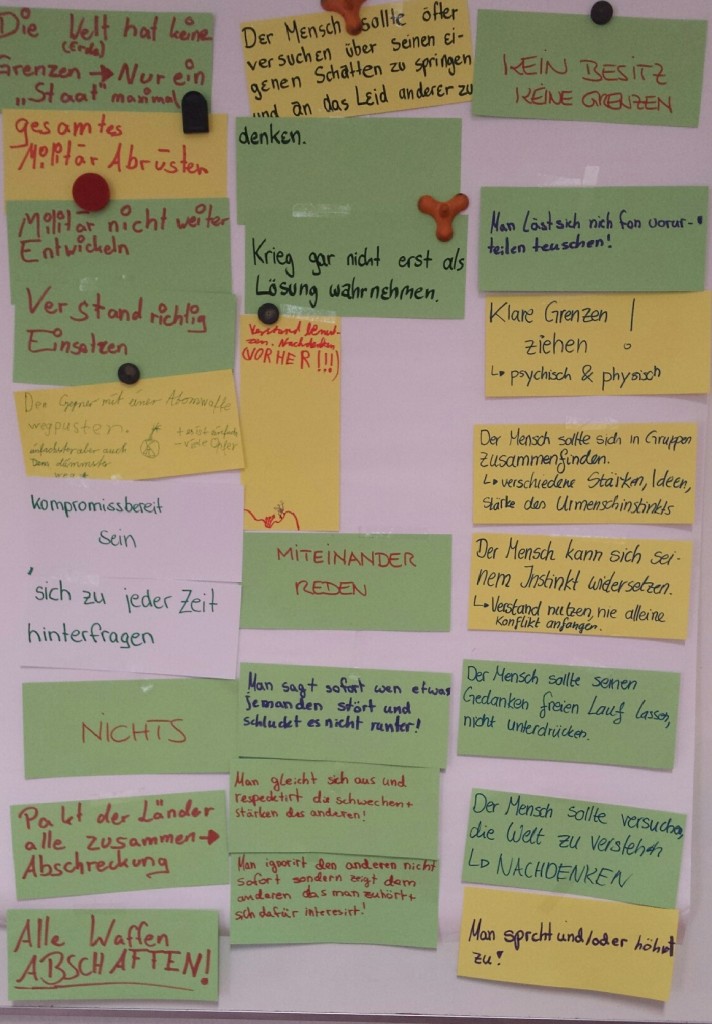 Die Welt hat keine
(Erde)
Grenzen → Nur ein
„Staat" maximal
gesamtes
Militär Abrüsten
Militär nicht weiter
Entwickeln
Verstand richtig
Einsetzen
Den Gegner mit einer Atomwaffe
wegpusten.
einfachster aber auch
Dem dümmster
+ ist einfach
- viele Opfer
Kompromissbereit
sein
sich zu jeder Zeit
hinterfragen
NICHTS
Pakt der Länder
alle zusammen →
Abschreckung
Alle Waffen
ABSCHAFTEN!
Der Mensch sollte öfter
versuchen über seinen ei-
genen Schatten zu springen
und an das Leid anderer zu
denken.
Krieg gar nicht erst als
Lösung wahrnehmen.
Verstand benut-
zen. Nachdenken
(VORHER!!!)
MITEINANDER
REDEN
Man sagt sofort wen etwas
jemanden stört und
schluckt es nicht runter!
Man gleicht sich aus und
respecktirt die schwechen +
stärken des anderen!
Man ignorirt den anderen nicht
sofort sondern zeigt dem
anderen das man zuhört +
sich dafür interesirt!
KEIN BESITZ
KEINE GRENZEN
Man Läst sich nich fon vorur-
teilen teuschen!
Klare Grenzen
ziehen !
↳ psychisch & physisch
Der Mensch sollte sich in Gruppen
zusammenfinden.
↳ verschiedene Stärken, Ideen,
Stärke des Urmenschinstinkts
Der Mensch kann sich sei-
nem Instinkt widersetzen.
↳ Verstand nutzen, nie alleine
Konflikt anfangen.
Der Mensch sollte seinen
Gedanken freien Lauf lassen,
nicht unterdrücken.
Der Mensch sollte versuchen,
die Welt zu verstehen
↳ NACHDENKEN
Man sprcht und/oder höhrt
zu!